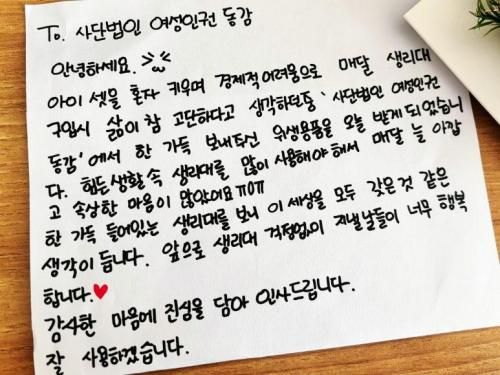 To. 사단법인 여성인권 동감
안녕하세요.
아이 셋을 혼자 키우며 경제적 어려움으로 매달 생리대
구입시 삶이 참 고단하다고 생각하던중 '사단법인 여성인권
동감'에서 한 가득 보내주신 위생용품을 오늘 받게 되었습니
다. 힘든생활 속 생리대를 많이 사용해야 해서 매달 늘 아깝
고 속상한 마음이 많았어요 ㅠㅠ
한 가득 들어있는 생리대를 보니 이 세상을 모두 갖은것 같은
생각이 듭니다. 앞으로 생리대 걱정없이 지낼날들이 너무 행복
합니다.♥
감사한 마음에 진심을 담아 인사드립니다.
잘 사용하겠습니다.